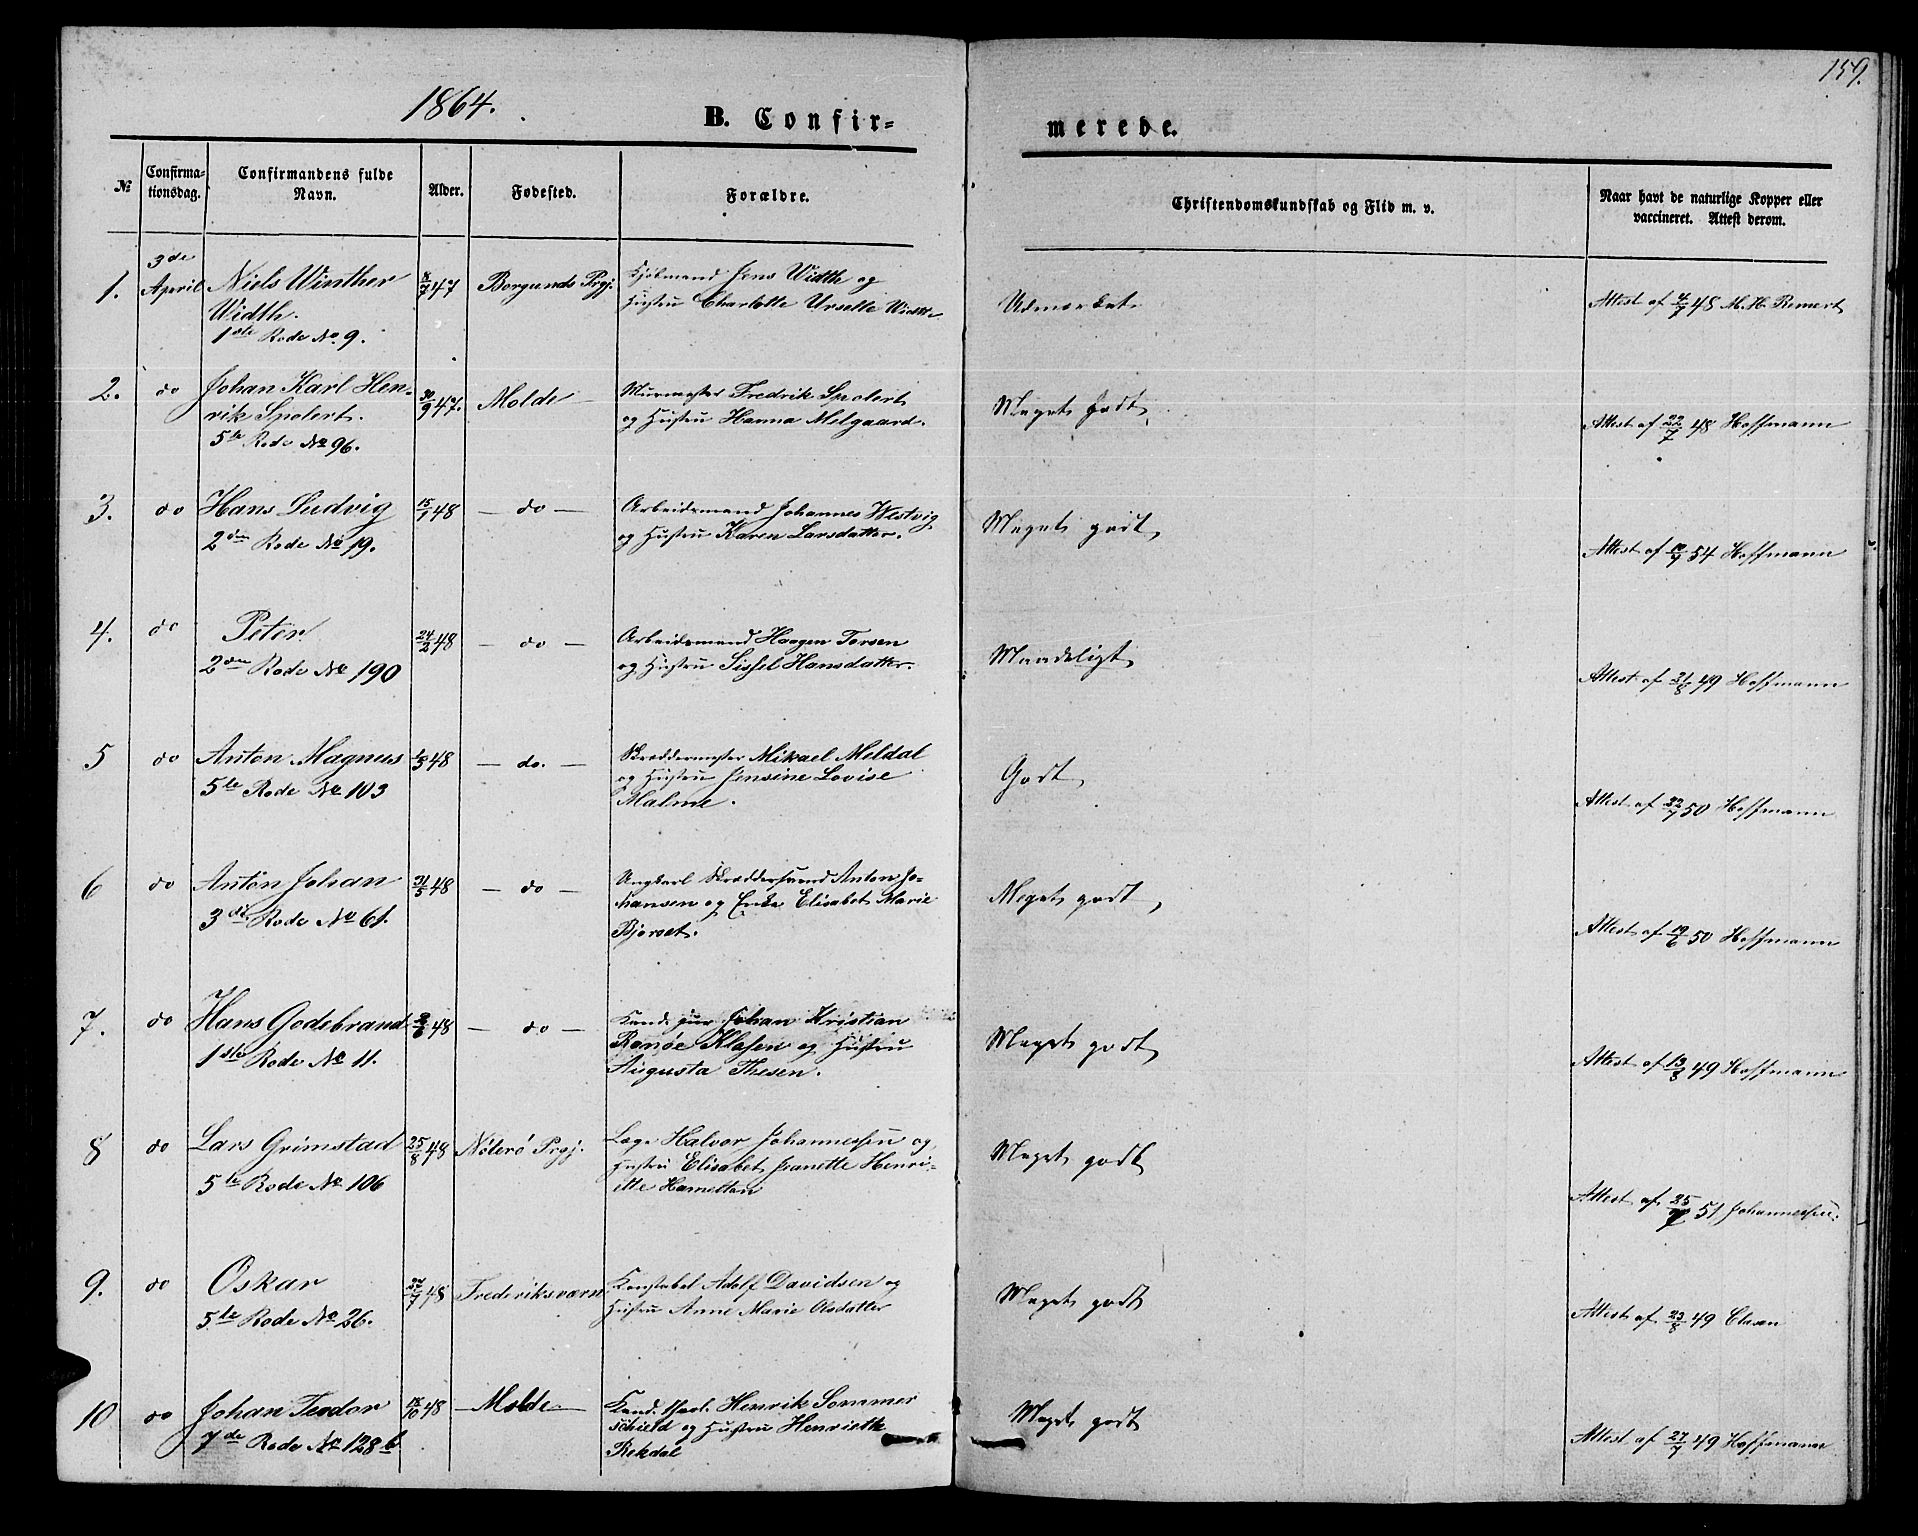 1864.
159.
B. Confir-
merede.
№
Confirma-
tionsdag.
Confirmandens fulde
Navn.
Alder.
Fødested.
Forældre.
Christendomskundskab og Flid m. v.
Naar havt de naturlige Kopper eller
vaccineret. Attest derom.
1. 3de April Niels Winther 8/7 47 Borgunds Prgj. Kjøbmand Jens Width og
Width. Hustru Charlotte Urselle Width
1ste Rode No 9.
Udmærket
Attest af 4/7 48 M. H. Remert
2. do Johan Karl Hen- 30/9 47. Molde Murmester Fredrik Spolert
rik Spolert. og Hustru Hanna Melgaard.
5te Rode No 96.
Meget godt,
Attest af 22/7 48 Hoffmann
3. do Hans Ludvig 15/1 48 - do - Arbeidsmand Johannes Westvig
2den Rode No 19. og Hustru Karen Larsdatter.
Meget godt,
Attest af 54 Hoffmann
4. do Peter 24/2 48 - do - Arbeidsmand Haagen Torsen
2den Rode No 190 og Hustru Sissel Hansdatter.
Maadeligt
Attest af 21/8 49 Hoffmann
5 do Anton Magnus 48 - do. - Skræddermester Mikael Meldal
5te Rode No 103 og Hustru Jensine Lovise
Malme.
Godt
Attest af 22/7 50 Hoffmann
6 do Anton Johan 31/5 48 - do - Ungkarl Skræddersvend Anton Jo-
3die Rode No 61. hansen og Enke Elisabet Marie
Bjørset.
Meget godt,
Attest af 19/6 50 Hoffmann
7. do Hans Godebrand 2/6 48 - do - Kand. jur Johan Kristian
1ste Rode No 11. Rønøe Klasen og Hustru
Augusta Thesen.
Meget godt,
Attest af 13/8 49 Hoffmann
8 do Lars Grimstad 25/8 48 Nøterø Prgj. Læge Halvor Johannessen og
5te Rode No 106 Hustru Elisabet Jeanette Henri-
ette Hamelton
Meget godt
Attest af 25/7 51 Johannessen.
9. do Oskar 22/7 48 Frederiksværn Konstabel Adolf Davidsen og
5te Rode No 26. Hustru Anne Marie Olsdatter
Meget godt
Attest af 23/8 49 Clasen
10 do Johan Teodor 48 - Molde - Kand. theol. Henrik Sommer
7de Rode No 128 b. schield og Hustru Henriette
Rekdal
Meget godt
Attest af 27/7 49 Hoffmann